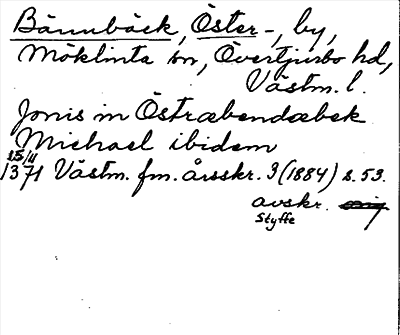 Bännbäck, Öster-, by,
Möklinta sn, Övertjurbo hd,
Västm. l.
Jonis in Östræbendæbek
Michael ibidem
15/11
1371 Västm. fm. årsskr. 3 (1884) s. 53.
avskr. orig
Styffe